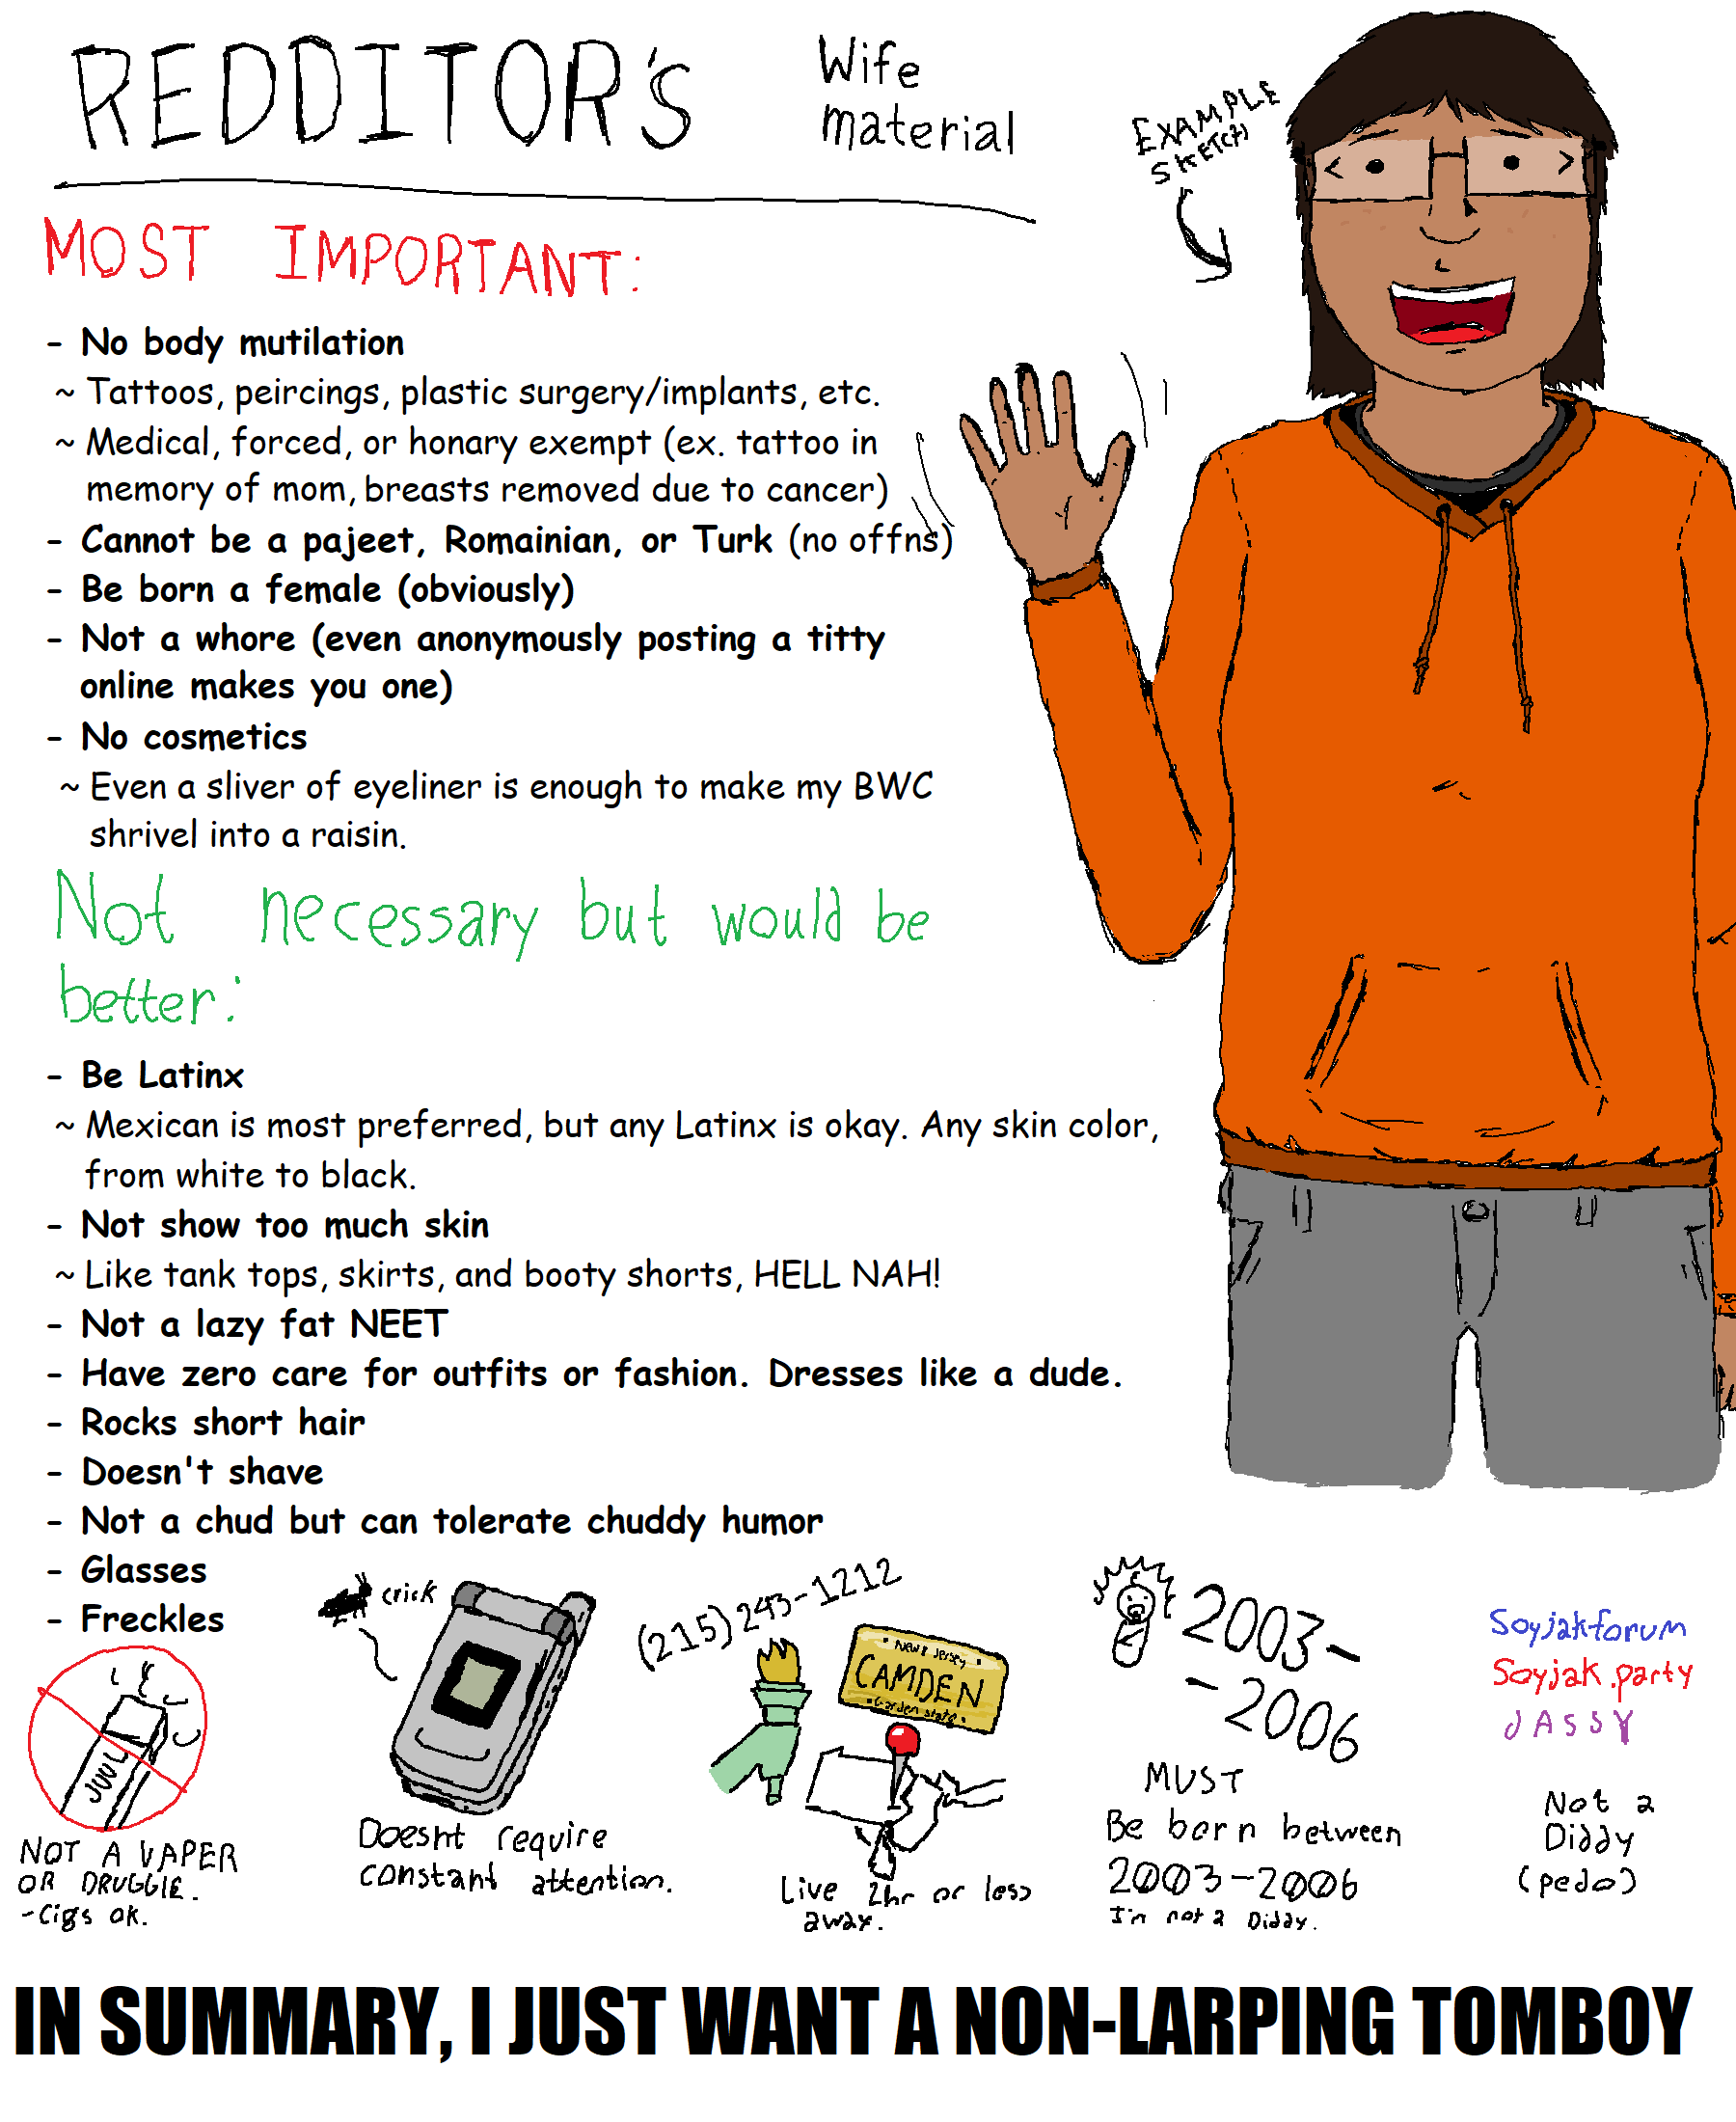 REDDITOR's
Wife
material
EXAMPLE
SKETCH
MOST IMPORTANT:
- No body mutilation
~ Tattoos, peircings, plastic surgery/implants, etc.
~ Medical, forced, or honary exempt (ex. tattoo in
memory of mom, breasts removed due to cancer)
- Cannot be a pajeet, Romainian, or Turk (no offns)
- Be born a female (obviously)
- Not a whore (even anonymously posting a titty
online makes you one)
- No cosmetics
~ Even a sliver of eyeliner is enough to make my BWC
shrivel into a raisin.
Not necessary but would be
better:
- Be Latinx
~ Mexican is most preferred, but any Latinx is okay. Any skin color,
from white to black.
- Not show too much skin
~ Like tank tops, skirts, and booty shorts, HELL NAH!
- Not a lazy fat NEET
- Have zero care for outfits or fashion. Dresses like a dude.
- Rocks short hair
- Doesn't shave
- Not a chud but can tolerate chuddy humor
- Glasses
- Freckles
JUUL
NOT A VAPER
OR DRUGGIE.
-Cigs ok.
crick
Doesnt require
constant attention.
(215) 243-1212
New Jersey
CAMDEN
Garden State
Live 2hr or less
away.
2003-
-2006
MUST
Be born between
2003-2006
I'm not a Diddy.
Soyjakforum
Soyjak.party
JASSY
Not a
Diddy
(pedo)
IN SUMMARY, I JUST WANT A NON-LARPING TOMBOY